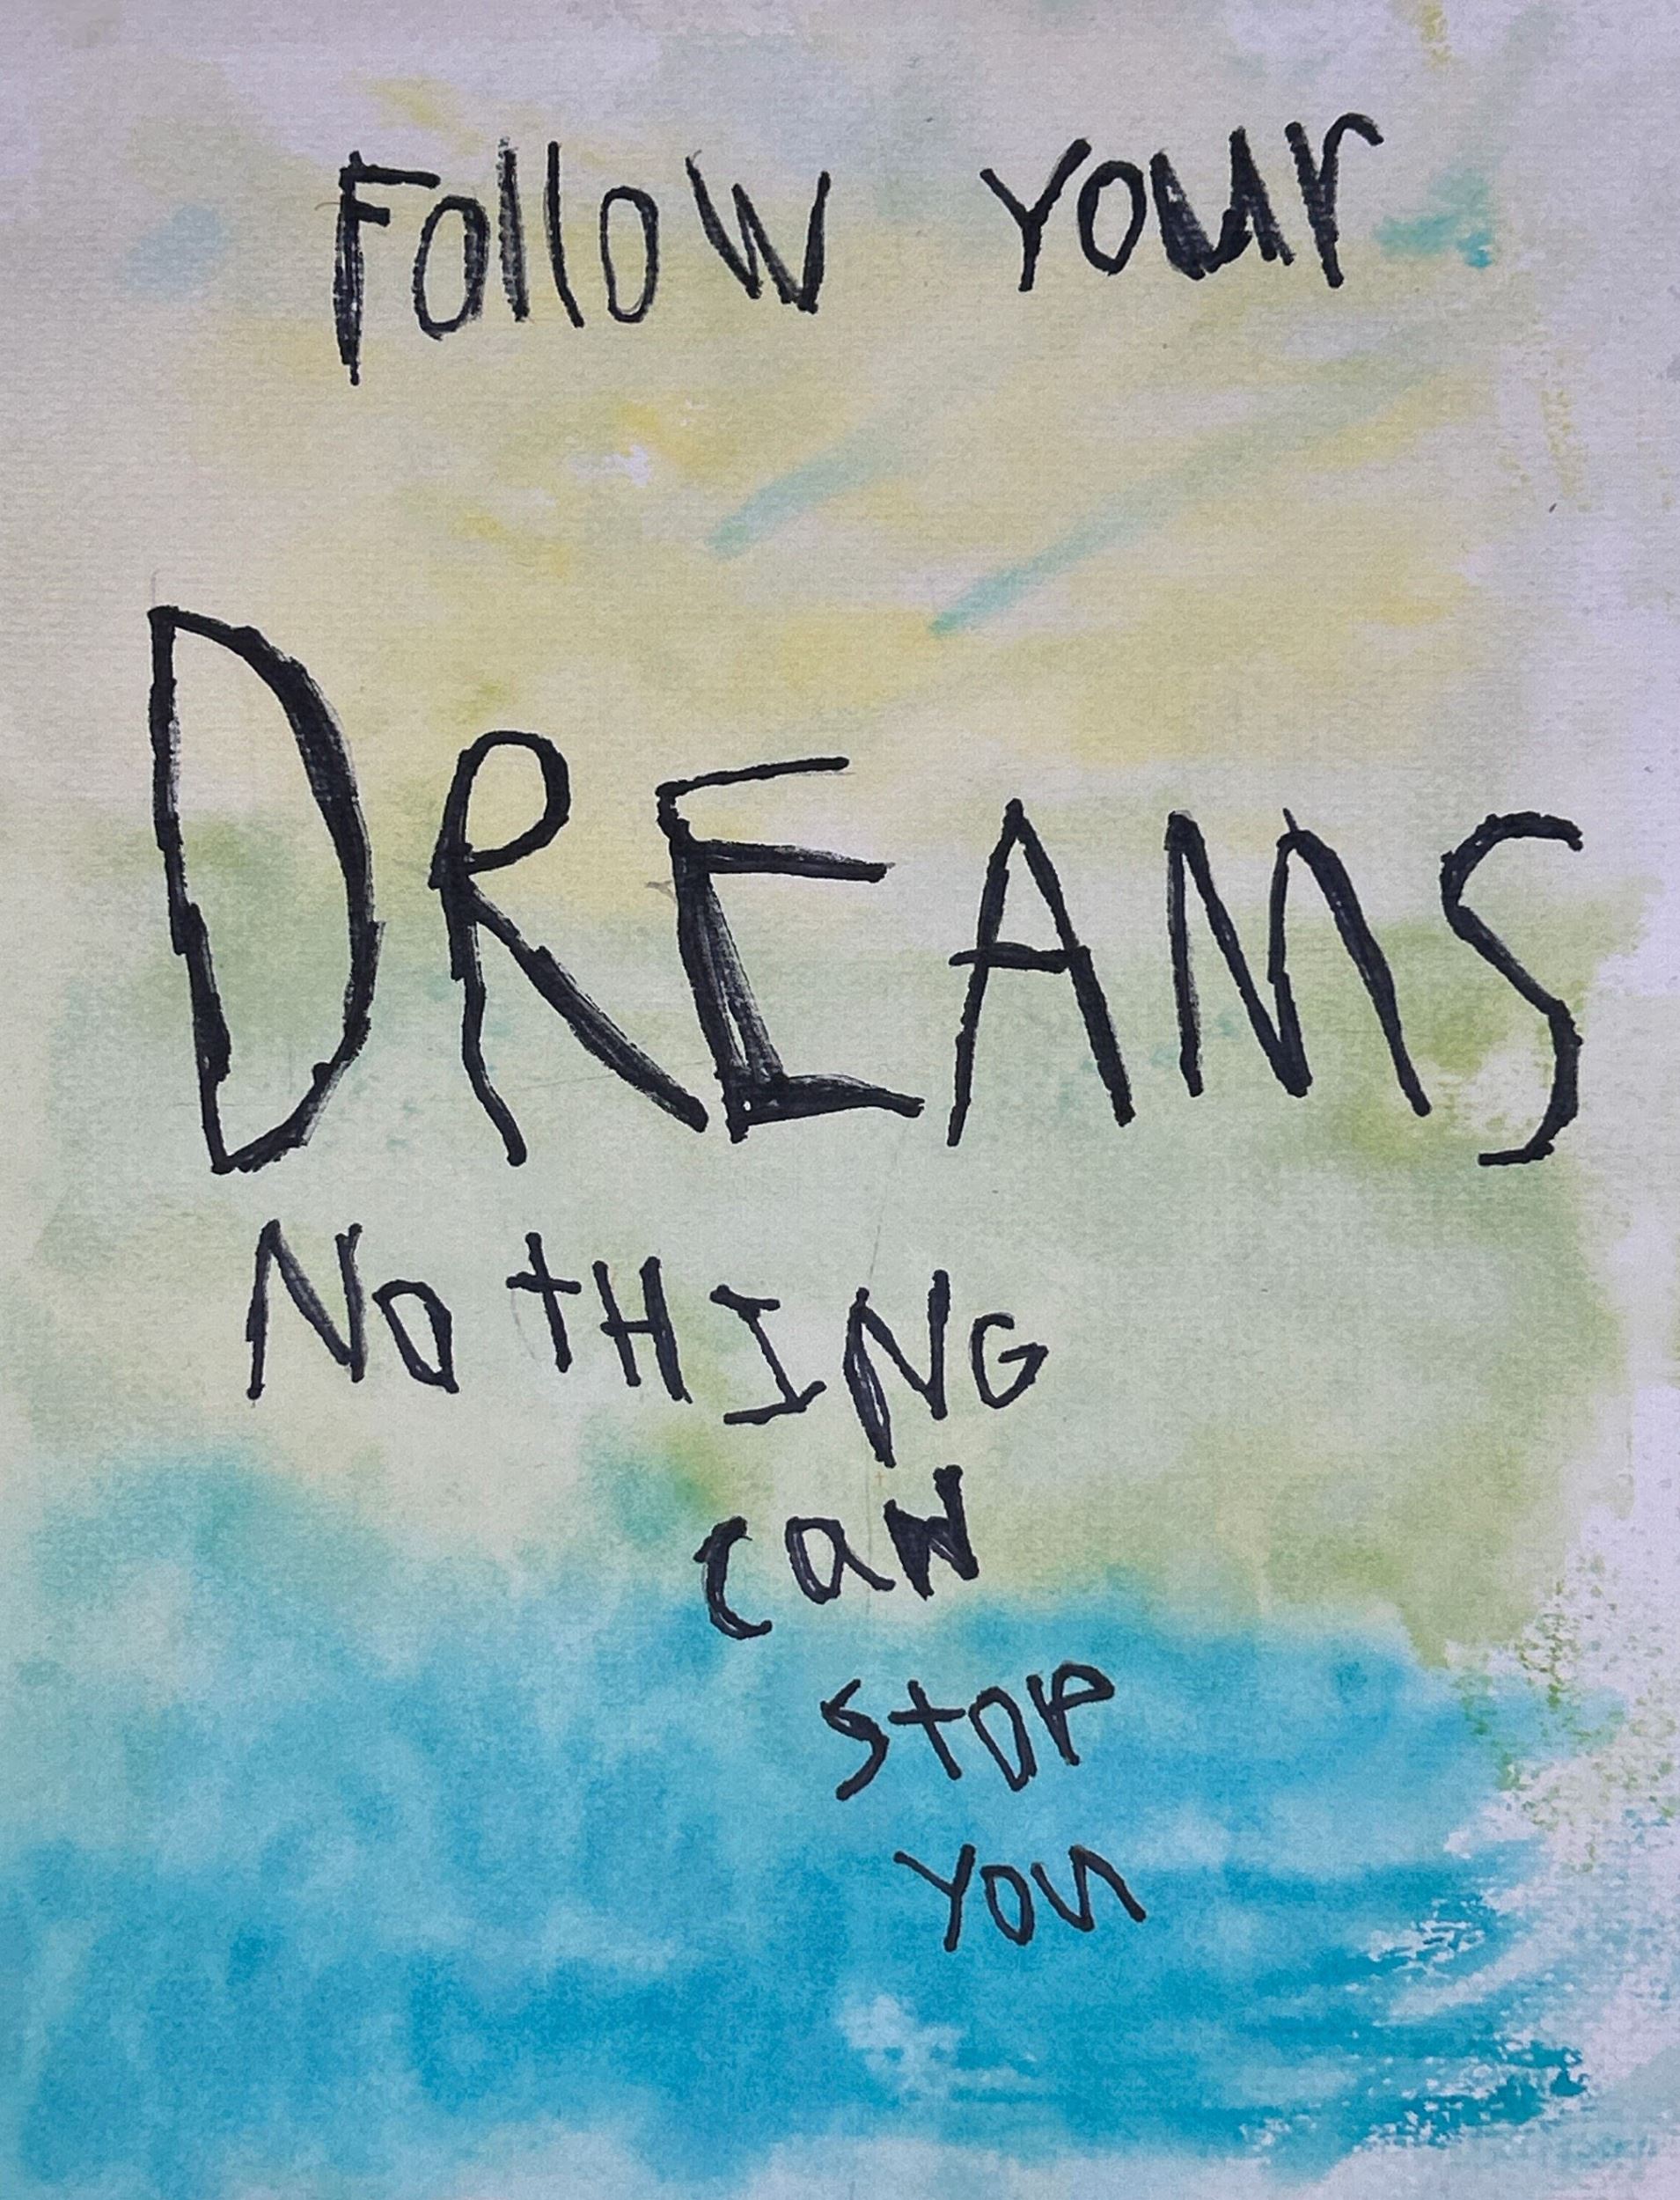 Follow Your
DREAMS
NOtHING
can
stop
You